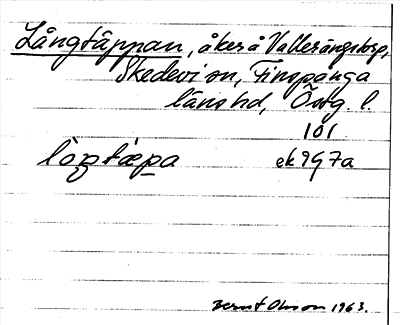 Långtäppan, åker å Vallerängstorp,
Skedevi sn, Finspånga
länshd, Östg. l.
101
ek 9G 7a
Bernt Olsson 1963.